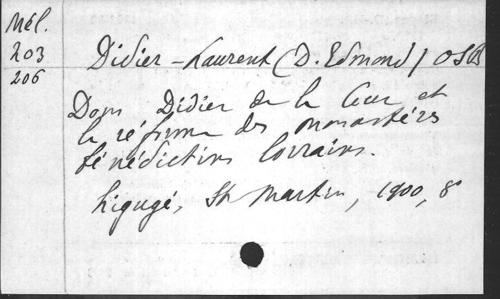 Mél.
203
206
Didier-Laurent (D. Edmond) OSB
Dom Didier de la Cour et
la réforme des monastères
bénédictins lorrains.
Ligugé, St Martin, 1900, 8°